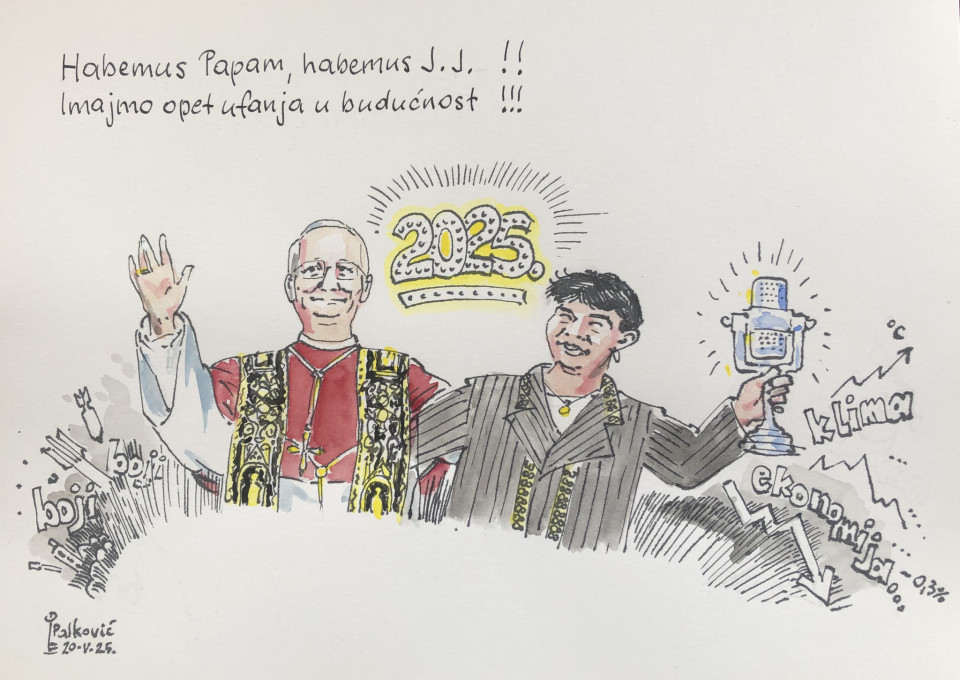 Habemus Papam, habemus J.J. !!
Imajmo opet ufanja u budućnost !!!
2025.
°C
klima
boji
boji
ekonomija...
-0,3%
Palković
20-V-25.